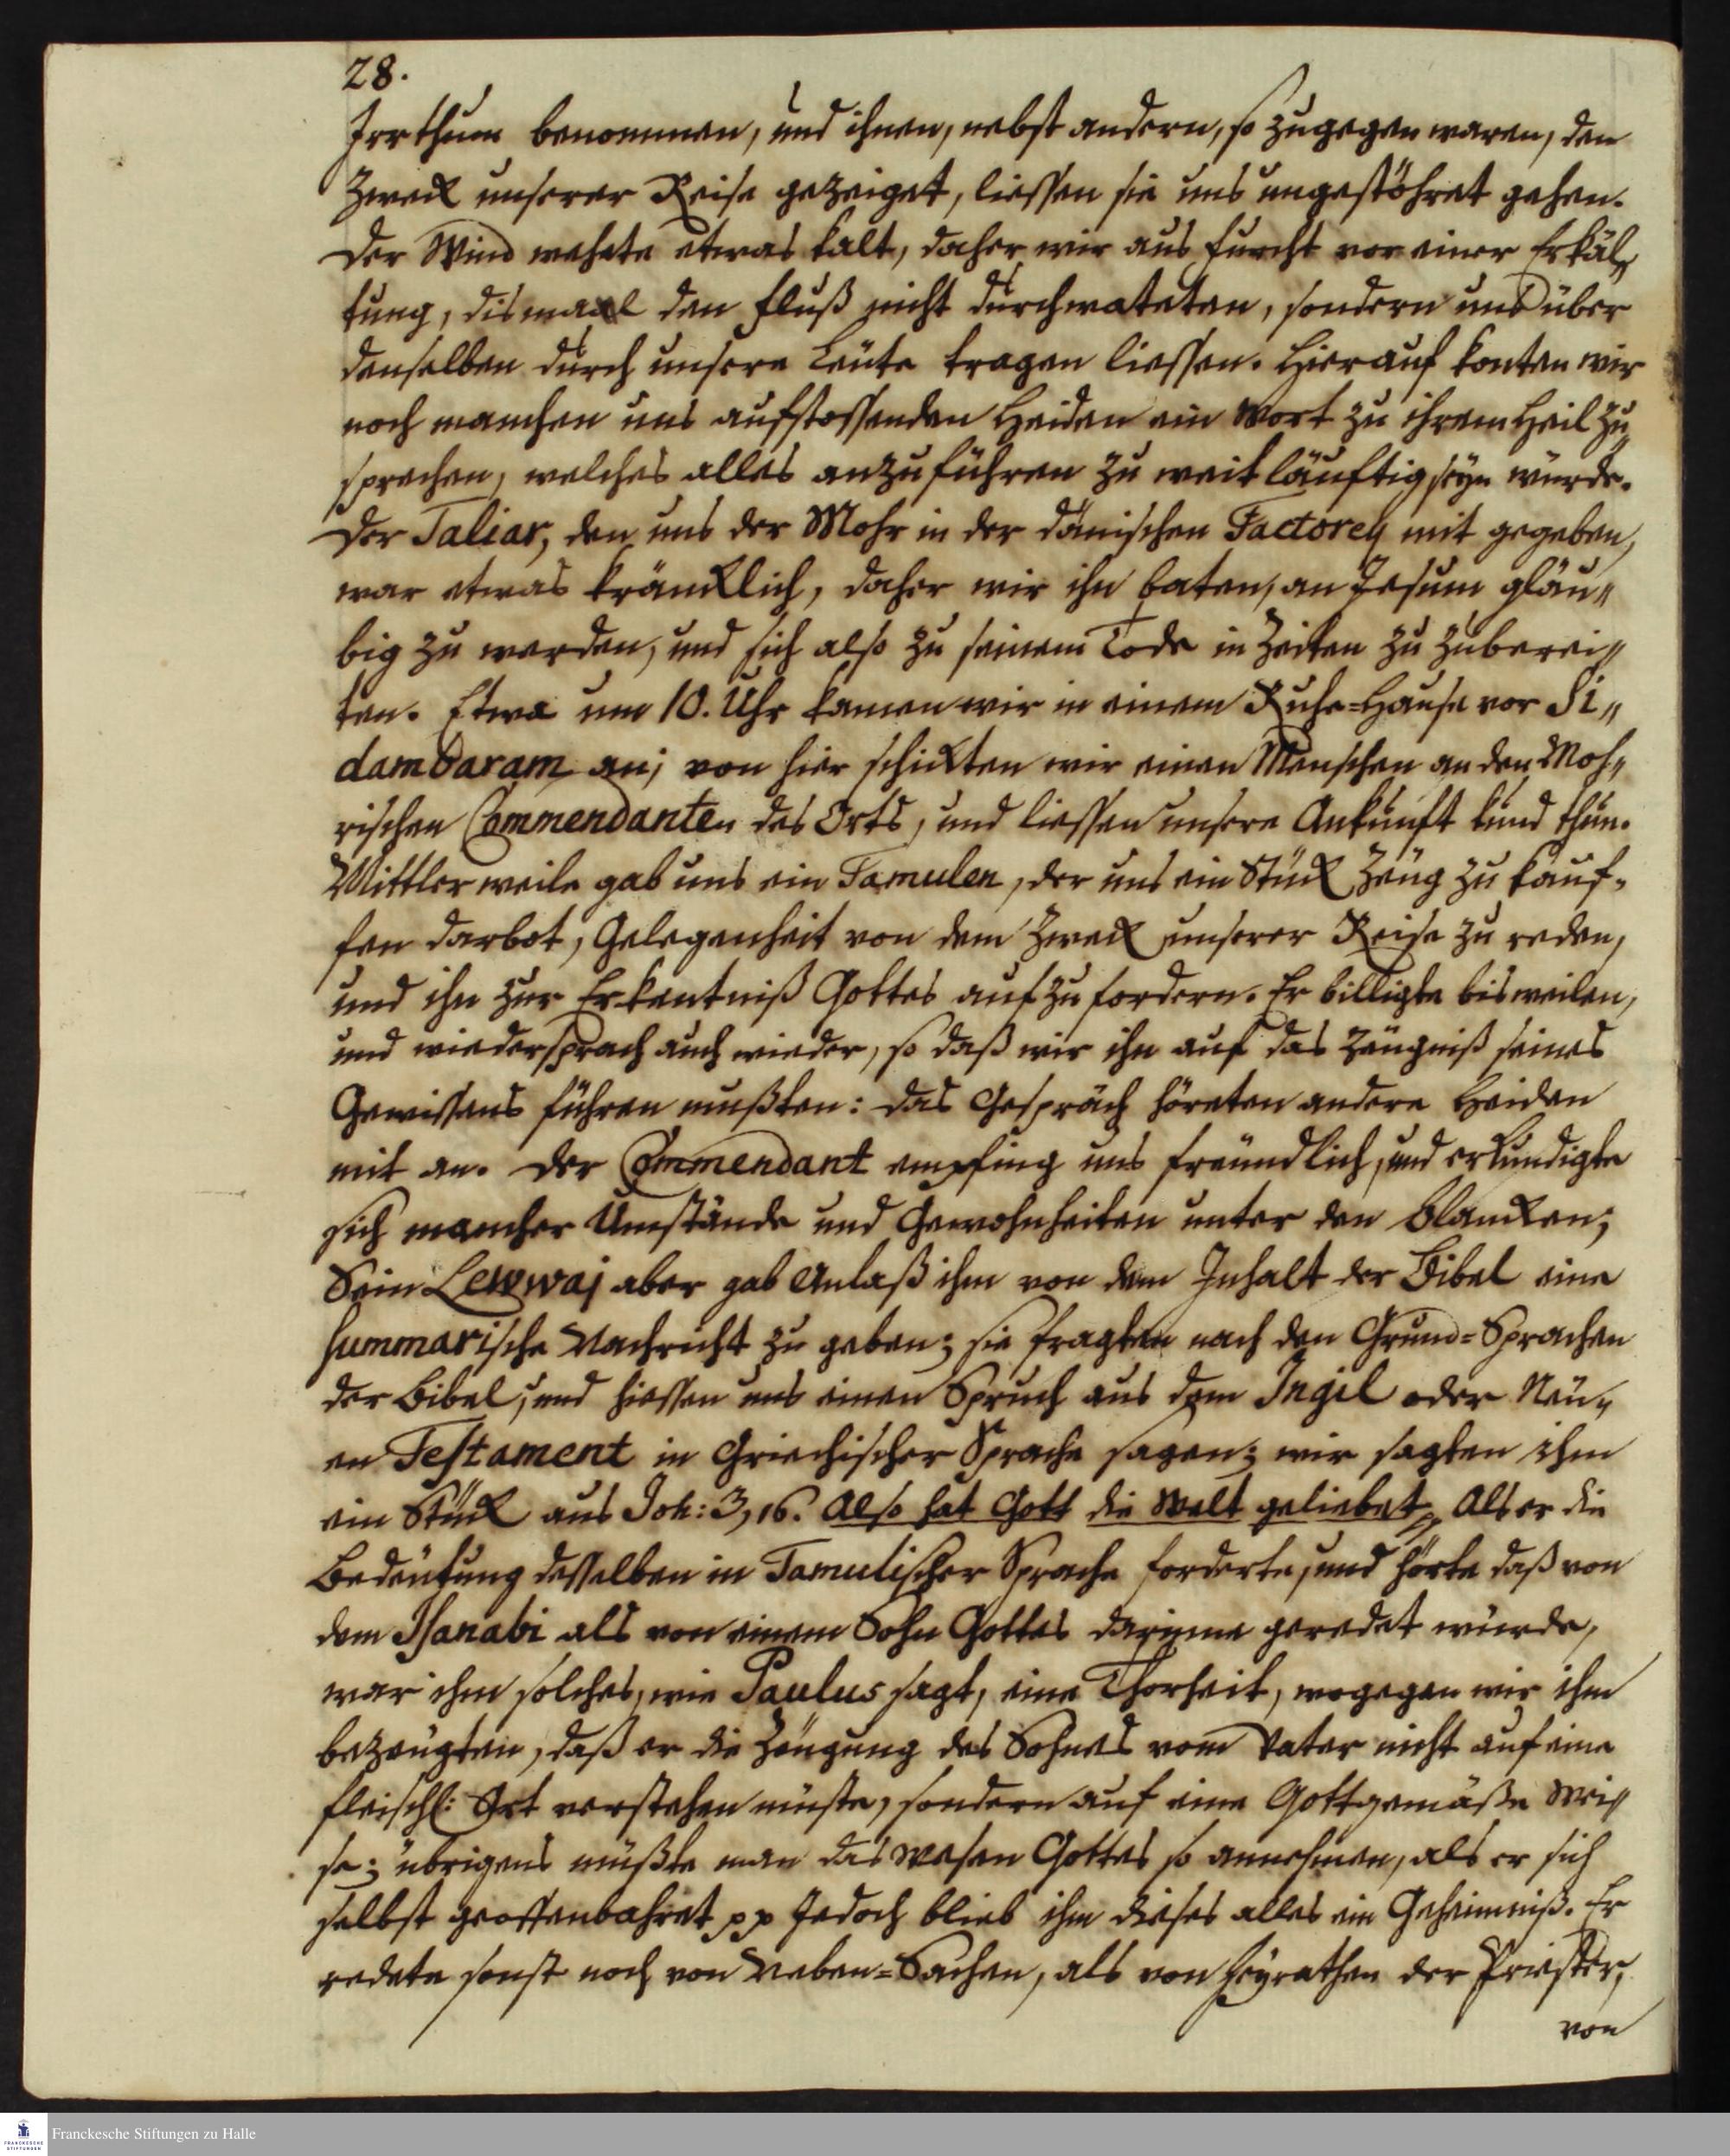 28.
Irrthum benommen, und ihnen, nebst andern, so zugegen waren, den
Zweck unserer Reise gezeiget, liessen sie uns ungestöhret gehen.
Der Wind wehete etwas kalt, daher wir aus Furcht vor einer Erkäl„
tung, dismaal den Fluß nicht durchwateten, sondern uns über
denselben durch unsere Leute tragen liessen. Hierauf konten wir
noch manchen uns aufstossenden Heiden ein Wort zu ihrem Heil zu„
sprechen, welches alles anzuführen zu weitläuftig seyn würde.
Der Taliar, den uns der Mohr in der dänischen Factorey mit gegeben,
war etwas kräncklich, daher wir ihn baten, an Jesum gläu„
big zu werden, und sich also zu seinem Tode in Zeiten zu zuberei„
ten. Etwa um 10. Uhr kamen wir in einem Ruhe=Hause vor Si„
dambaram an; von hier schickten wir einen Menschen an den Moh„
rischen Commendanten des Orts, und liessen unsere Ankunft kund thun.
Mittlerweile gab uns ein Tamulen, der uns ein Stück Zeug zu kauf„
fen darbot, Gelegenheit von dem Zweck unserer Reise zu reden,
und ihn zur Erkentniß Gottes aufzufordern. Er billigte bisweilen,
und wiedersprach auch wieder, so daß wir ihn auf das Zeugniß seines
Gewissens führen mußten: das Gespräch höreten andere Heiden
mit an. Der Commendant empfing uns freundlich, und erkundigte
sich mancher Umstände und Gewohnheiten unter den Blancken;
Sein Lewwaj aber gab Anlaß ihm von dem Inhalt der Bibel eine
summarische Nachricht zu geben; sie fragten nach den Grund=Sprachen
der Bibel, und hiessen uns einen Spruch aus dem Ingil oder Neu„
en Testament in Griechischer Sprache sagen; wir sagten ihm
ein Stück aus Joh: 3, 16. Also hat Gott die Welt geliebet Als er die
Bedeutung desselben in Tamulischer Sprache forderte, und hörte daß von
dem Isanabi als von einem Sohn Gottes darinne geredet würde,
war ihm solches, wie Paulus sagt, eine Thorheit, wogegen wir ihm
bezeugten, daß er die Zeugung des Sohnes vom Vater nicht auf eine
fleischl: Art verstehen müste, sondern auf eine Gottgemäße Wei„
se; übrigens müßte man das Wesen Gottes so annehmen, als er sich
selbst geoffenbahret pp Jedoch blieb ihm dieses alles ein Geheimniß. Er
redete sonst noch von Neben=Sachen, als von Heyrathen der Priester,
von
FRANCKESCHE STIFTUNGEN
Franckesche Stiftungen zu Halle